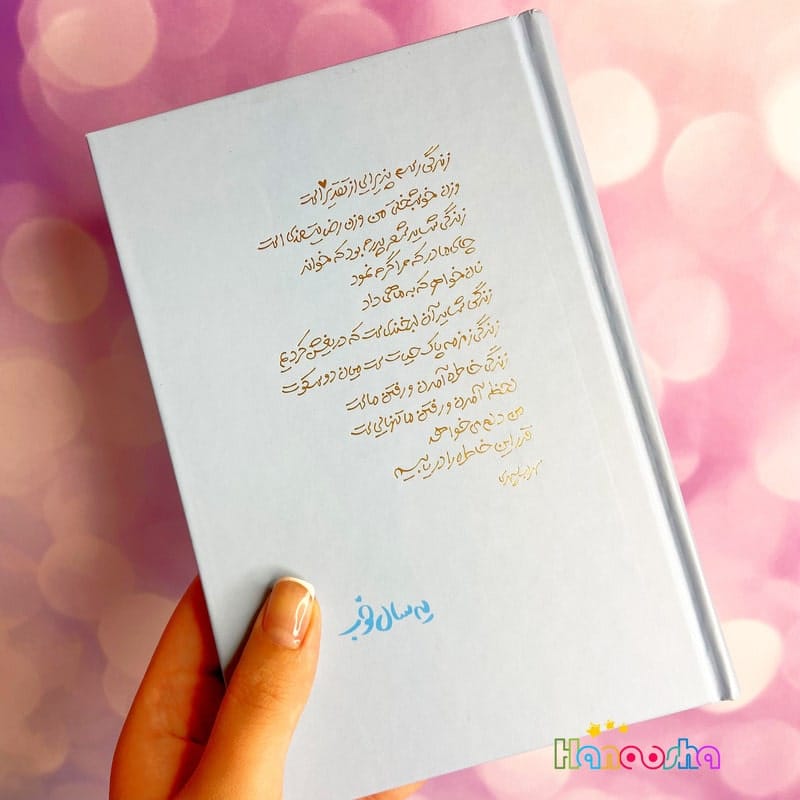 زندگی رسم پذیرایی از تقدیر است
وزن خوشبختی من وزن رضایتمندی است
زندگی شاید شعر پدرم بود که خواند
چای مادر که مرا گرم نمود
نان خواهر که به ماهی داد
زندگی شاید آن لبخندی ست که دریغش کردیم
زندگی زمزمه پاک حیات ست میان دو سکوت
زندگی خاطره آمدن و رفتن ماست
لحظه آمدن و رفتن ما تنهایی ست
من دلم می خواهد
قدر این خاطره را دریابیم
سهراب سپهری
یه سال خوب
Hanoosha